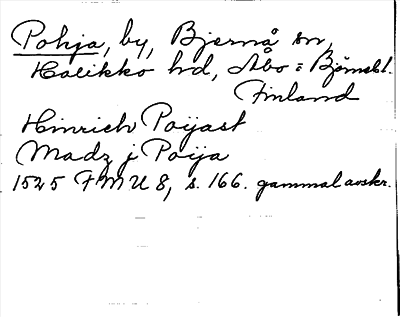 Pohja, by, Bjernå sn,
Halikko hd, Åbo = Björnebl.
Finland
Hinrich Poijast
Madz j Poija
1525 FMU 8, s. 166. gammal avskr.